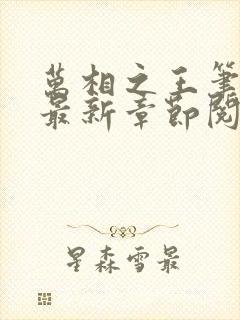 萬相之王筆
最新章節閱
星森雪最